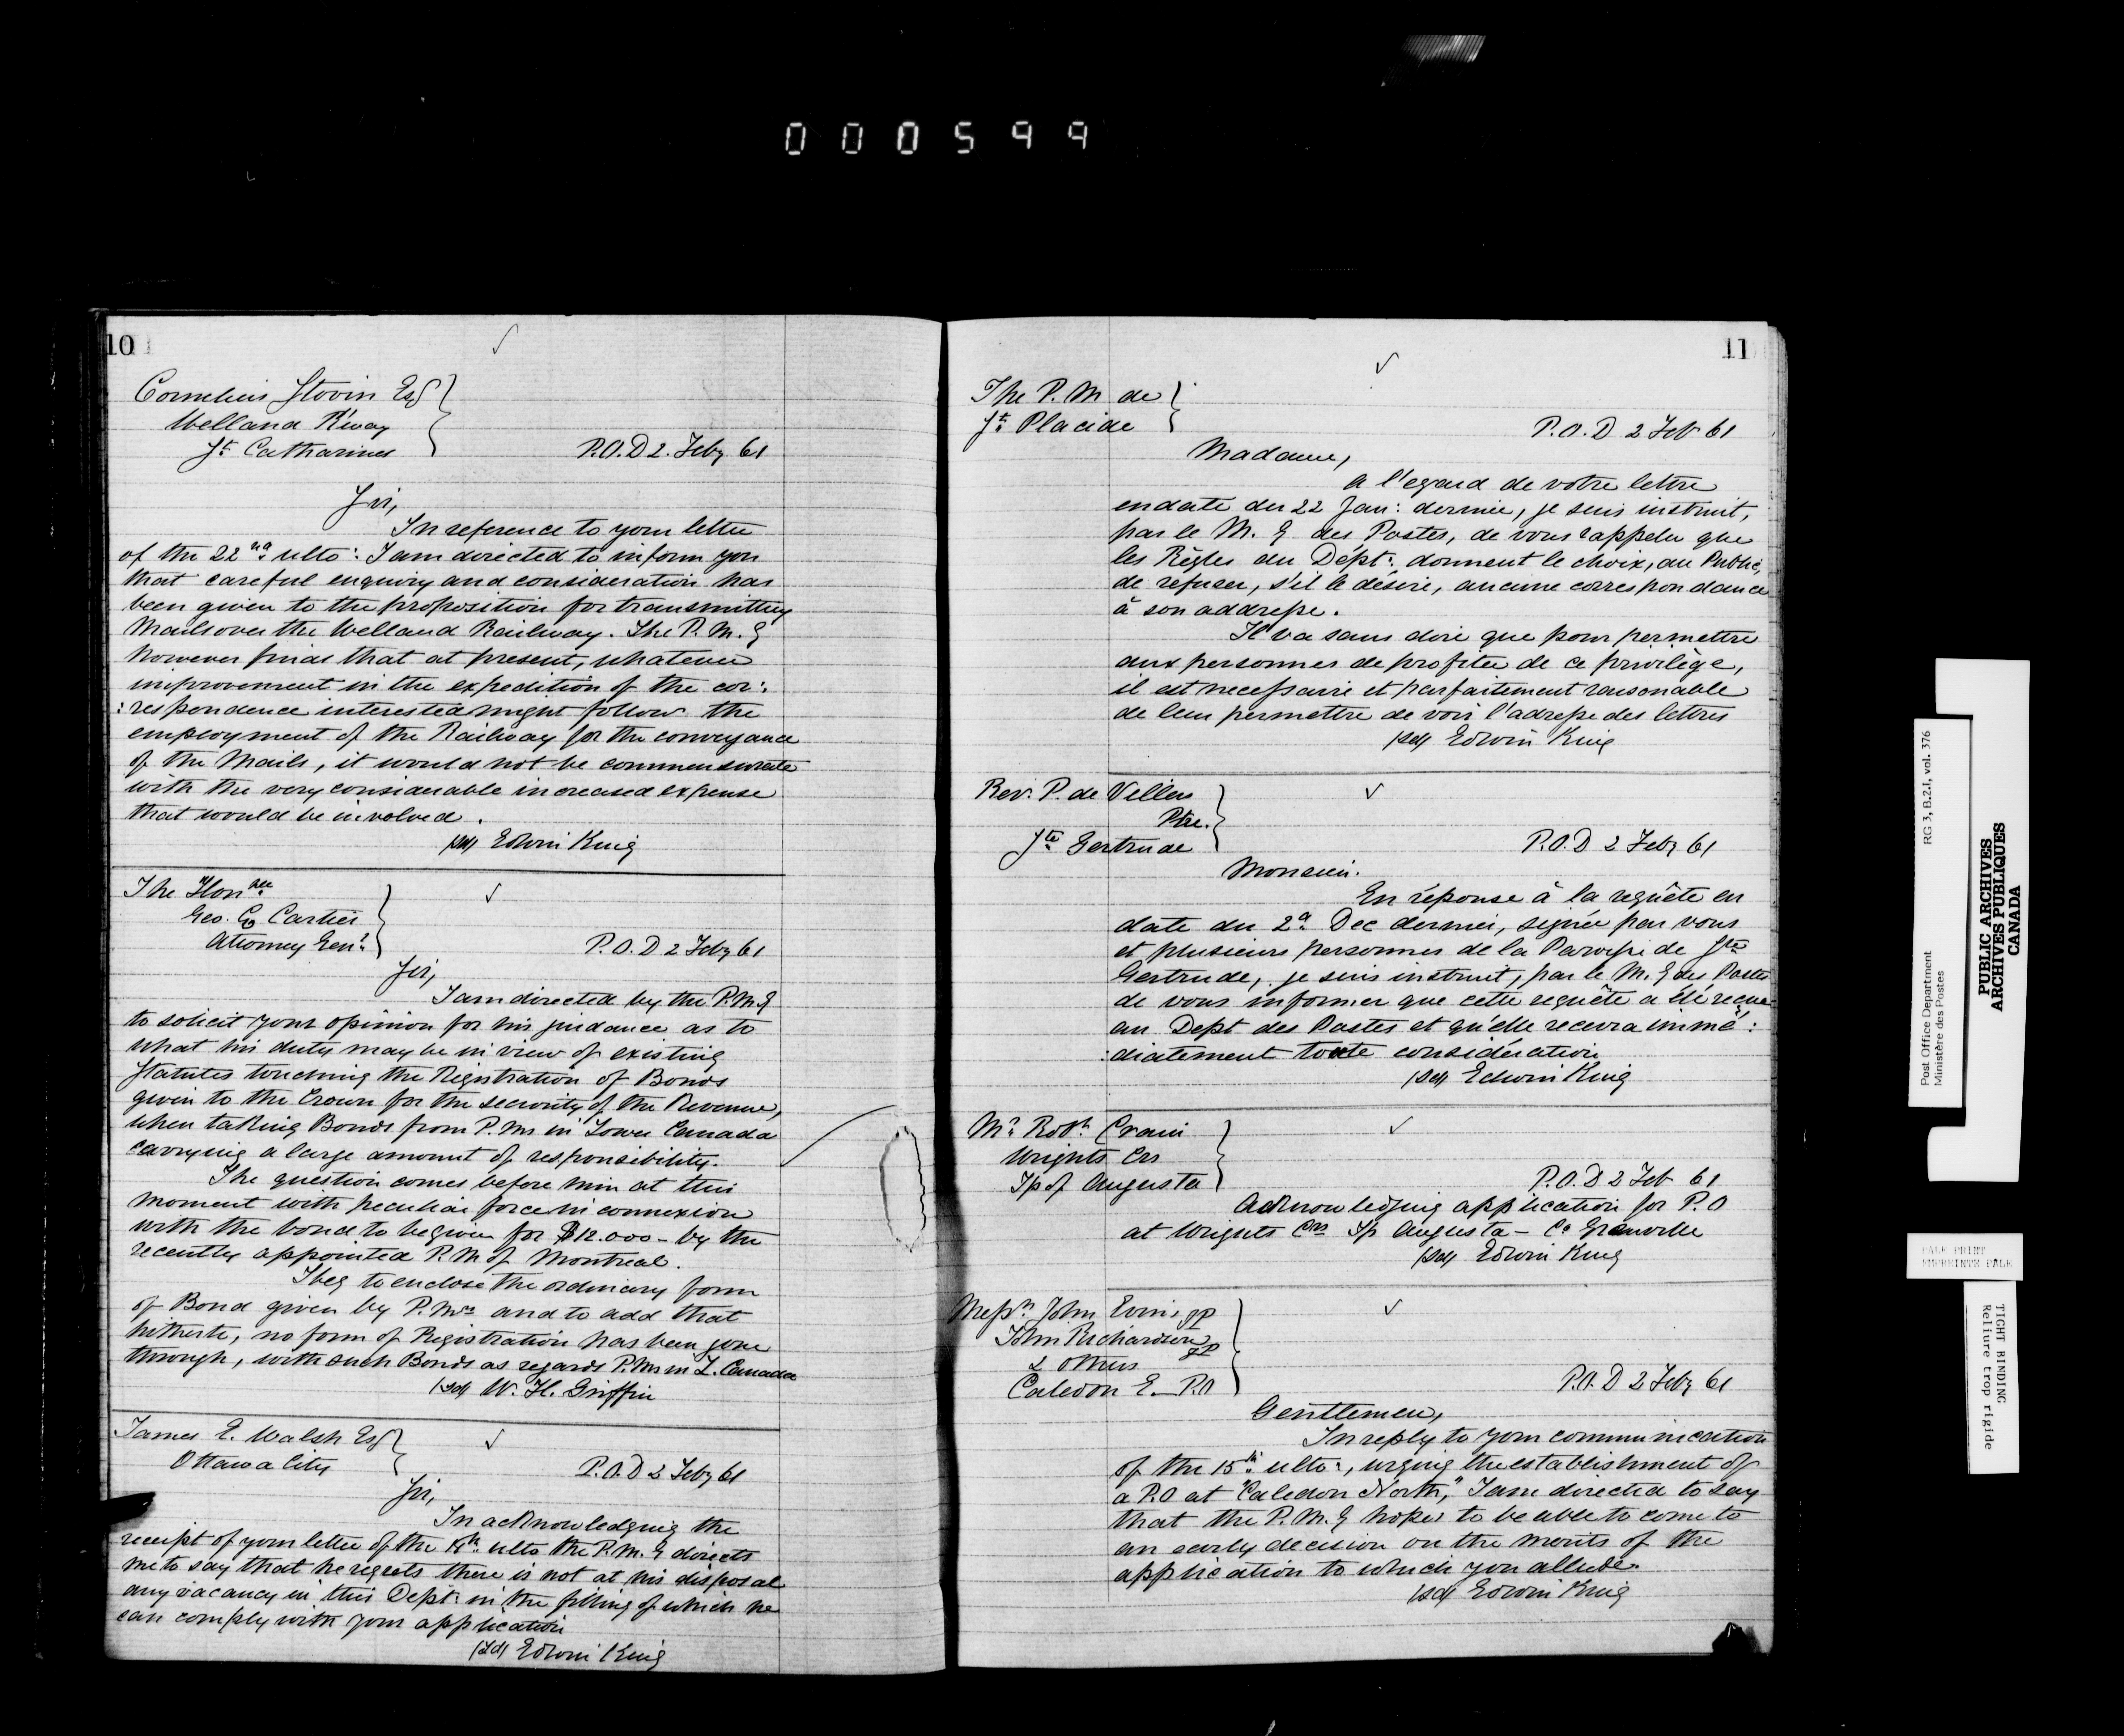 000599
10
Cornelius Stovin Esq
Welland R'way
St. Catharines
P.O.D 2. Feby 61
Sir,
In reference to your letter
of the 22nd ulto: I am directed to inform you
that careful enquiry and consideration has
been given to the proposition for transmitting
Mails over the Welland Railway. The P.M.G
however finds that at present, whatever
improvement in the expedition of the cor:
:respondence interested might follow the
employment of the Railway for the conveyance
of the Mails, it would not be commensurate
with the very considerable increased expense
that would be involved.
(sd) Edwin King
The Honble
Geo. E. Cartier
Attorney Genl.
P.O.D 2 Feby 61
Sir,
I am directed by the P.M.G
to solicit your opinion for his guidance as to
what his duty may be in view of existing
Statutes touching the Registration of Bonds
given to the Crown for the security of the Revenue,
when taking Bonds from P.Ms in Lower Canada
carrying a large amount of responsibility.
The question comes before him at this
moment with peculiar force in connexion
with the bond to be given for $12.000 - by the
recently appointed P.M of Montreal.
I beg to enclose the ordinary form
of Bond given by P.Mrs and to add that
hitherto, no form of Registration has been gone
through, with such Bonds as regards P.Ms in L. Canada
(sd) W. H. Griffin
James E. Walsh Esq
Ottawa City
P.O.D 2 Feby 61
Sir,
In acknowledging the
receipt of your letter of the ulto the P.M.G directs
me to say that he regrets there is not at his disposal
any vacancy in this Dept: in the filling of which he
can comply with your application
(sd) Edwin King
11
The P.M de
St. Placide
P.O.D 2 Feb 61
Madame,
a l'egard de votre lettre
en date du 22 Jan: dernier, je suis instruit,
par le M.G des Postes, de vous rappeler que
les Règles du Dépt: donnent le choix, au Public,
de refuser, s'il le désire, aucune correspondance
à son addresse.
Il va sans dire que pour permettre
aux personnes de profiter de ce privilège,
il est necessaire et parfaitement raisonable
de leur permettre de voir l'adresse des lettres
(sd) Edwin King
Rev. P. de Villers
Ptre.
Ste Gertrude
P.O.D 2 Feby 61
Monsieur.
En réponse à la requête en
date du 2d. Dec dernier, signée par vous
et plusieurs personnes de la Paroisse de Ste
Gertrude, je suis instruit, par le M.G des Postes
de vous informer que cette requête a été reçue
au Dept des Postes et qu'elle recevra immé:
:diatement toute considération
(sd) Edwin King
Mr. Robt. Crain
Wrights Crs
Tp of Augusta
P.O.D 2 Feb 61
Acknowledging application for P.O
at Wrights Crs Tp Augusta - Co Grenville
(sd) Edwin King
Messrs John JP
John Richardson JP
& others
Caledon E. P.O
P.O.D 2 Feby 61
Gentlemen,
In reply to your communication
of the 15th. ulto:, urging the establishment of
a P.O at "Caledon North," I am directed to say
that the P.M.G hopes to be able to come to
an early decision on the merits of the
application to which you allude.
(sd) Edwin King
Post Office Department
Ministère des Postes
RG 3, B.2.I, vol. 376
PUBLIC ARCHIVES
ARCHIVES PUBLIQUES
CANADA
PALE PRINT
EMPREINTE PALE
TIGHT BINDING
Reliure trop rigide